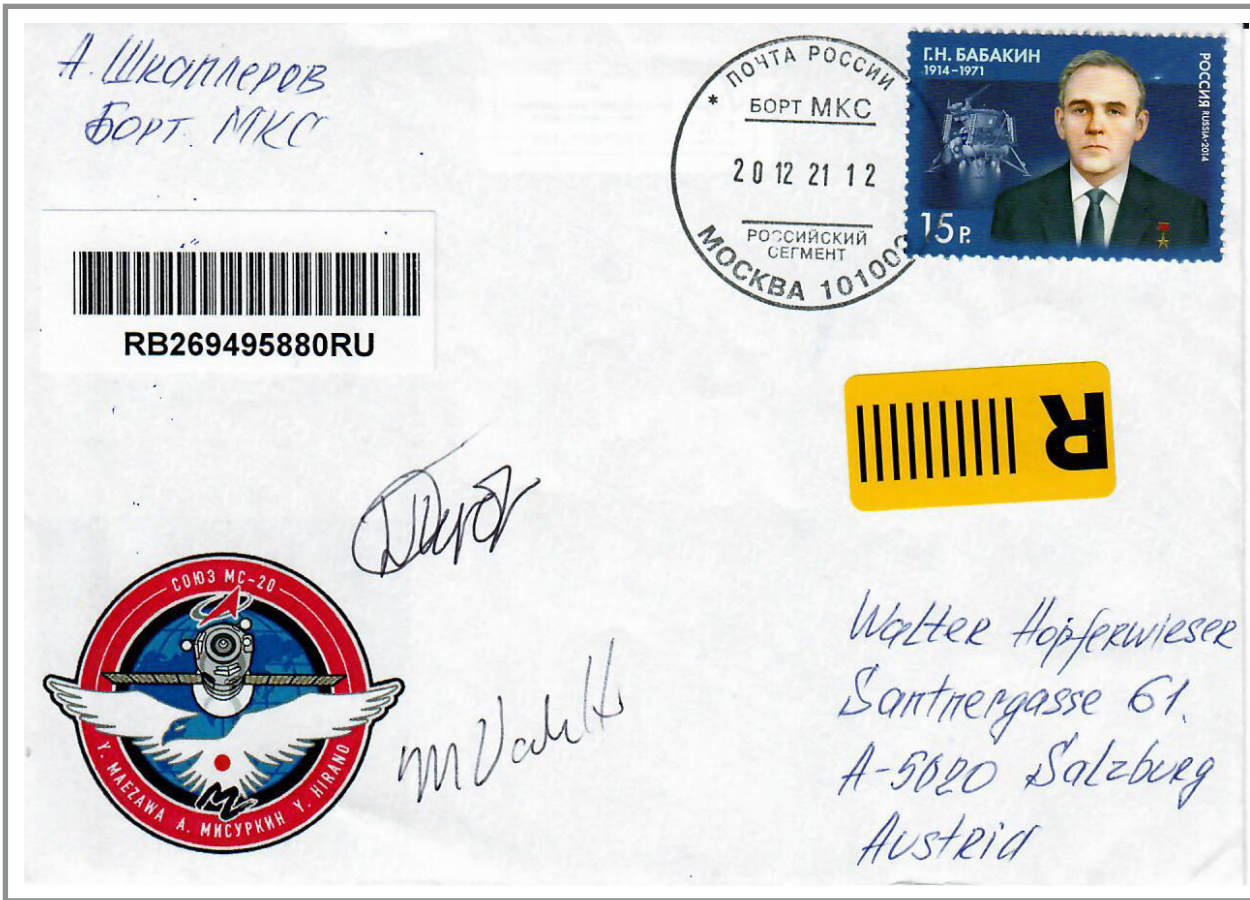 А. Шкаплеров
Борт. МКС
ПОЧТА РОССИИ
БОРТ МКС
20 12 21 12
РОССИЙСКИЙ
СЕГМЕНТ
МОСКВА 101000
Г.Н. БАБАКИН
1914–1971
РОССИЯ RUSSIA•2014
15 Р.
RB269495880RU
R
СОЮЗ МС-20
Y. MAEZAWA А. МИСУРКИН Y. HIRANO
Walter Hopferwieser
Santnergasse 61.
A-5020 Salzburg
Austria